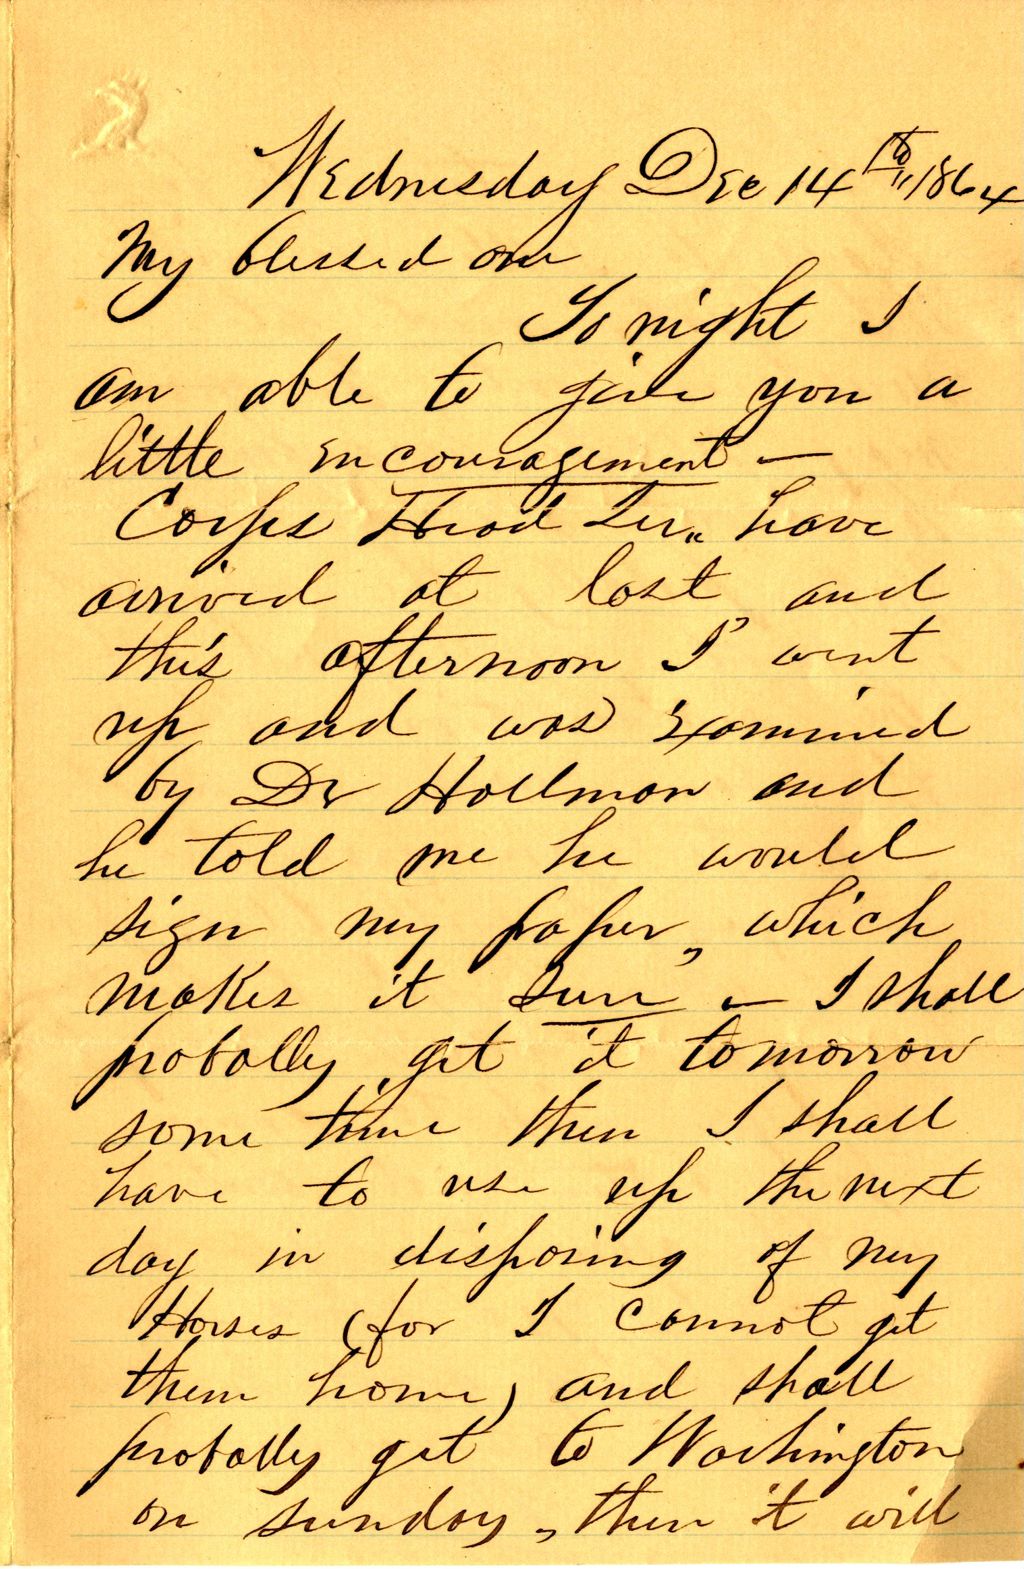 Wednesday Dec 14th, 1864
My blessed one
To night I
am able to give you a
little encouragement —
Corps Head Qr" have
arrived at last, and
this afternoon I went
up and was examined
by Dr Hollman and
he told me he would
sign my paper, which
makes it sure — I shall
probally get it tomorrow
some time then I shall
have to use up the next
day in disposing of my
Horses (for I cannot get
them home) and shall
probally get to Washington
on sunday, then it will